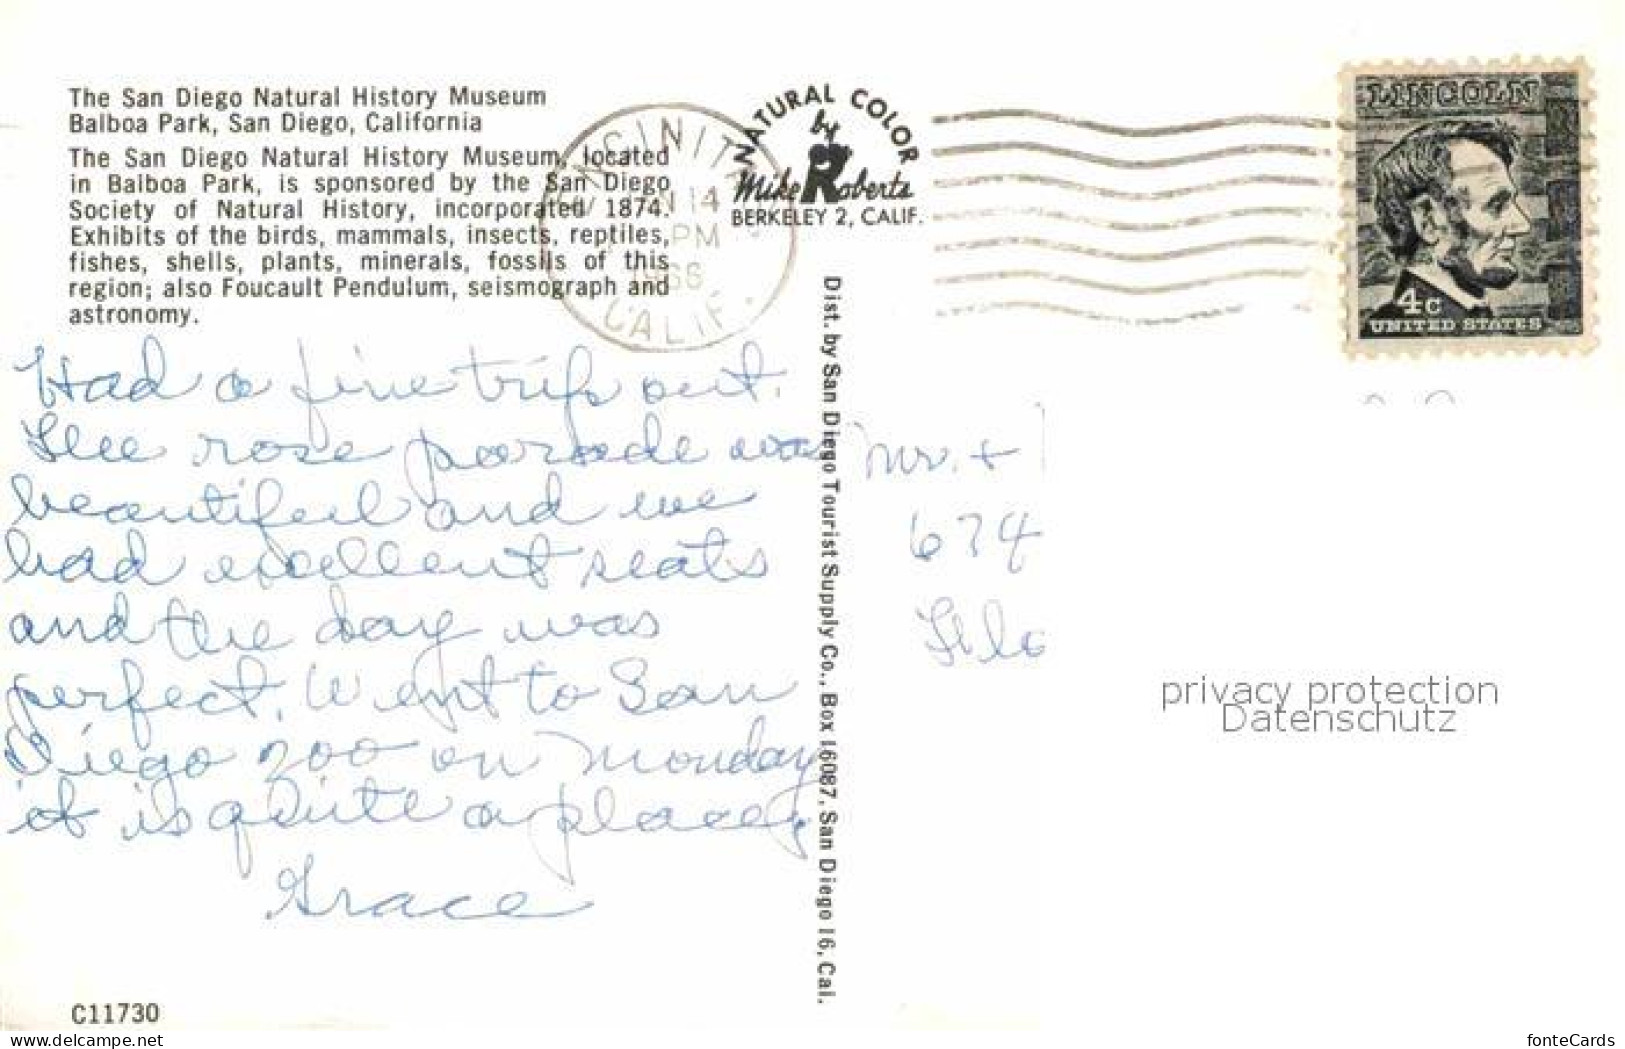 The San Diego Natural History Museum
Balboa Park, San Diego, California
The San Diego Natural History Museum, located
in Balboa Park, is sponsored by the San Diego
Society of Natural History, incorporated 1874.
Exhibits of the birds, mammals, insects, reptiles,
fishes, shells, plants, minerals, fossils of this
region; also Foucault Pendulum, seismograph and
astronomy.
14
PM
CALIF.
NATURAL COLOR
by
Mike Roberts
BERKELEY 2, CALIF.
LINCOLN
4c
UNITED STATES
Had a fine trip out.
The rose parade was
beautiful and we
had excellent seats
and the day was
perfect. Went to San
Diego zoo on Monday
it is quite a place.
Grace
Dist. by San Diego Tourist Supply Co., Box 16087, San Diego 16, Cal.
Mr. +
674
privacy protection
Datenschutz
C11730
www.delcampe.net
fonteCards